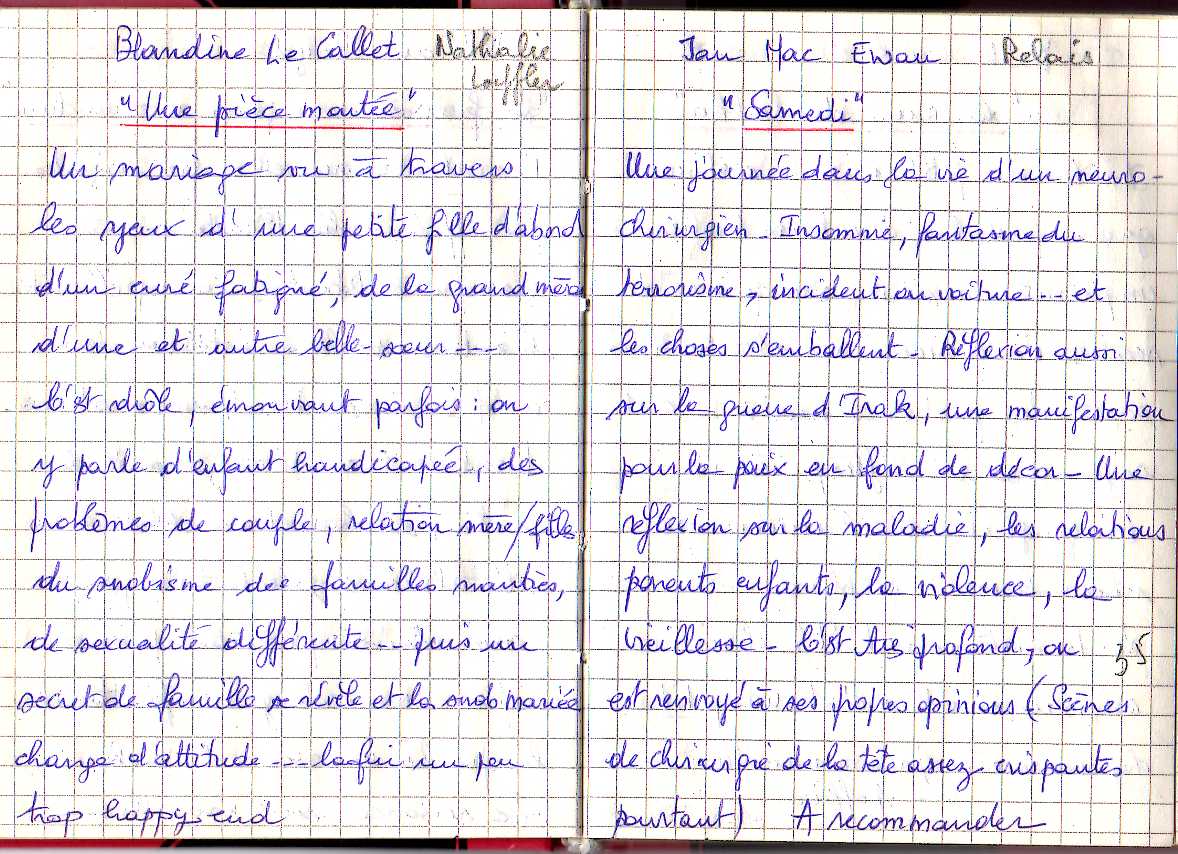 Blandine Le Callet Nathalie
Loeffler
"Une pièce montée"
Un mariage vu à travers
les yeux d'une petite fille d'abord
d'un curé fatigué, de la grand mère
d'une et autre belle-soeur ---
C'est drôle, émouvant parfois : on
y parle d'enfant handicapée, des
problèmes de couple, relation mère/fille
du snobisme des familles nanties,
de sexualité différente -- puis un
secret de famille se révèle et la snob mariée
change d'attitude --- la fin un peu
trop happy end
Ian Mac Ewan Relais
"Samedi"
Une journée dans la vie d'un neuro-
chirurgien - Insomnie, fantasme du
terrorisme, incident en voiture -- et
les choses s'emballent - Réflexion aussi
sur la guerre d'Irak, une manifestation
pour la paix en fond de décor - Une
réflexion sur la maladie, les relations
parents enfants, la violence, la
vieillesse - C'est très profond, on 35
est renvoyé à ses propres opinions (Scènes
de chirurgie de la tête assez crispantes
pourtant) A recommander